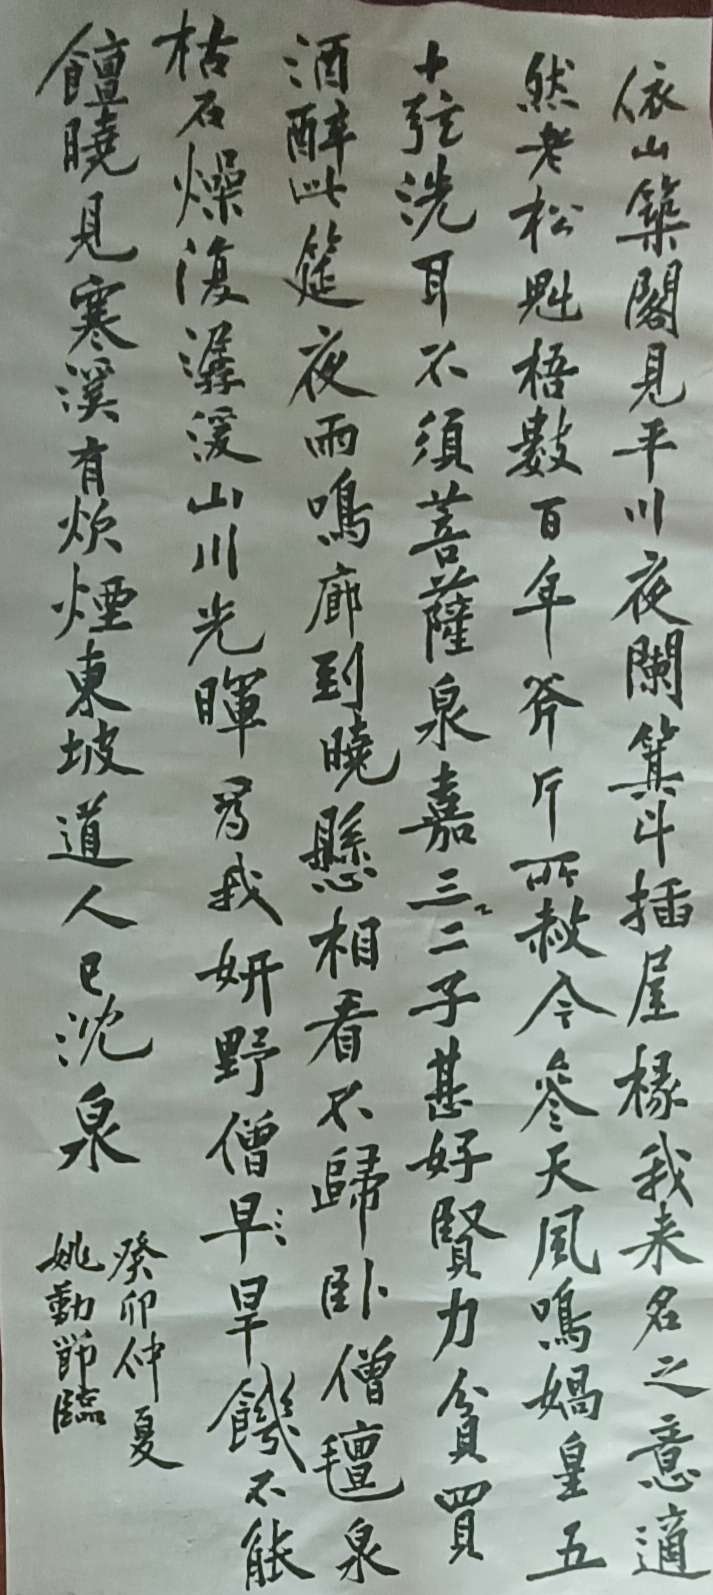 依山築閣見平川夜闌箕斗插屋椽我来名之意適
然老松魁梧數百年斧斤所赦今參天風鳴媧皇五
十弦洗耳不須菩薩泉嘉三二子甚好賢力貧買
酒醉此筵夜雨鳴廊到曉懸相看不歸卧僧氈泉
枯石燥復潺湲山川光暉為我妍野僧早旱饑不能
饘曉見寒溪有炊煙東坡道人已沈泉
癸卯仲夏
姚勤臨